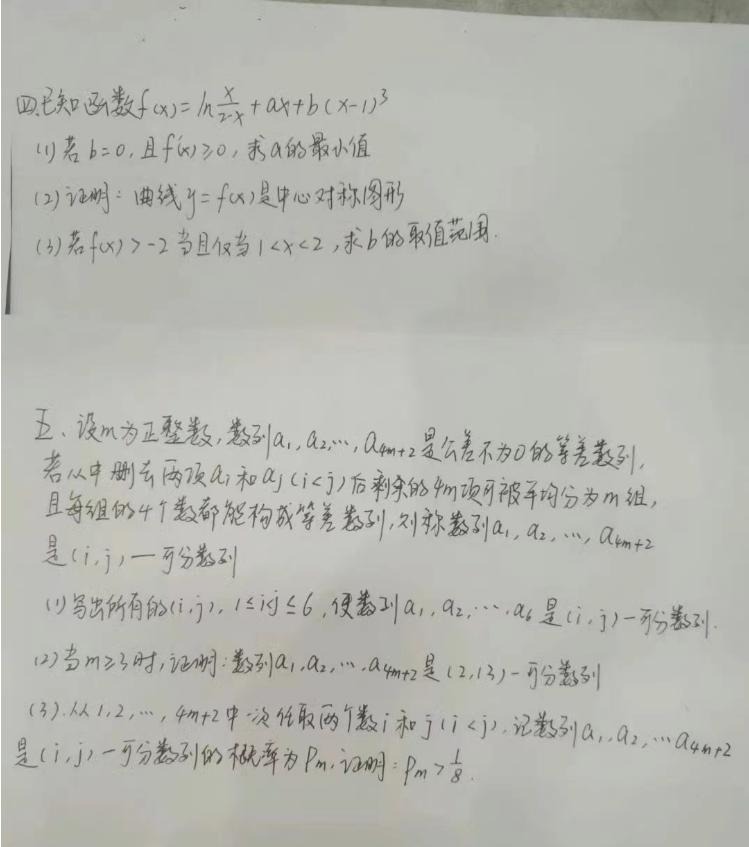 四.已知函数f(x)=ln x/(2-x)+ax+b(x-1)³
(1)若b=0,且f'(x)≥0,求a的最小值
(2)证明:曲线y=f(x)是中心对称图形
(3)若f(x)>-2当且仅当1<x<2,求b的取值范围.
五、设m为正整数,数列a₁,a₂,…,a₄ₘ₊₂是公差不为0的等差数列,
若从中删去两项aᵢ和aⱼ(i<j)后剩余的4m项可被平均分为m组,
且每组的4个数都能构成等差数列,则称数列a₁,a₂,…,a₄ₘ₊₂
是(i,j)—可分数列
(1)写出所有的(i,j),1≤i<j≤6,使数列a₁,a₂,…,a₆是(i,j)—可分数列.
(2)当m≥3时,证明:数列a₁,a₂,…,a₄ₘ₊₂是(2,13)—可分数列
(3).从1,2,…,4m+2中一次任取两个数i和j(i<j),记数列a₁,a₂,…a₄ₘ₊₂
是(i,j)—可分数列的概率为Pₘ,证明:Pₘ>1/8.